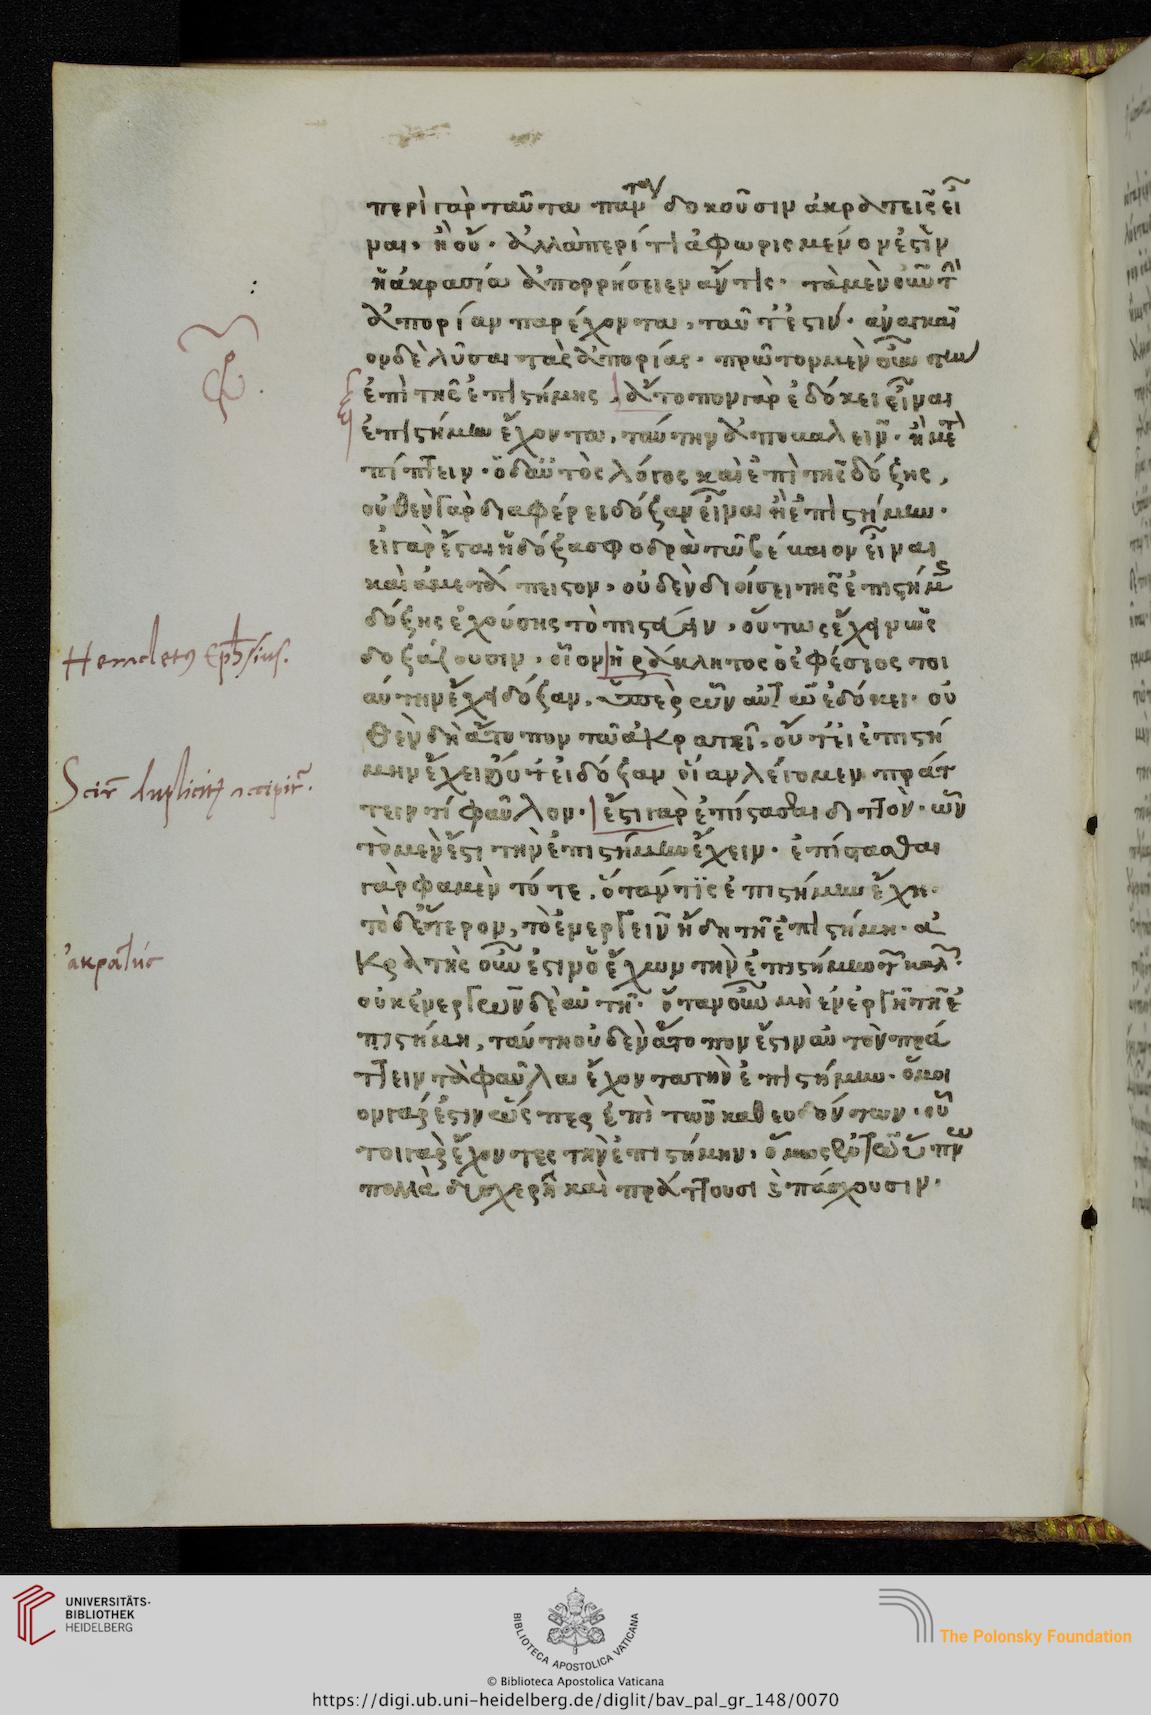 περὶ γὰρ ταῦτα πάντων δοκοῦσιν ἀκρατεῖς εἶ
ναι, ἢ οὔ. ἀλλὰ περί τι ἀφωρισμένον ἐστὶν
ἡ ἀκρασία ἀπορρήσειεν ἄν τις. τὰ μὲν οὖν τὴν
ἀπορίαν παρέχοντα, ταῦτ' ἐστίν. ἀναγκαῖ
ον δὲ λῦσαι τὰς ἀπορίας. πρῶτον μὲν οὖν τὴν
ἐπὶ τῆς ἐπιστήμης, ἄτοπον γὰρ ἐδόκει εἶναι
ἐπιστήμην ἔχοντα, ταύτην ἀποβαλεῖν. ἢ μετα
πίπτειν. ὁ δ' αὐτὸς λόγος καὶ ἐπὶ τῆς δόξης,
οὐθὲν γὰρ διαφέρει δόξαν εἶναι ἢ ἐπιστήμην.
εἰ γὰρ ἔσται ἡ δόξα σφοδρὰ τῷ βέβαιον εἶναι
καὶ ἀμετάπειστον, οὐδὲν διοίσει τῆς ἐπιστήμης
δόξης ἐχούσης τὸ πιστεύειν, οὕτως ἔχειν ὡς
δοξάζουσιν, οἷον ἡράκλητος ὁ ἐφέσιος τοι
αύτην ἔχει δόξαν, ὑπὲρ ὧν αὐτῷ ἐδόκει. οὐ
θὲν δὴ ἄτοπον τῷ ἀκρατεῖ, οὔτ' εἰ ἐπιστή
μην ἔχει οὔτ' εἰ δόξαν οἵαν λέγομεν πράτ
τειν τι φαῦλον. ἔστι γὰρ ἐπίστασθαι διττὸν. ὧν
τὸ μὲν ἔστι τὴν ἐπιστήμην ἔχειν. ἐπίστασθαι
γὰρ φαμὲν τότε, ὅταν τὶς ἐπιστήμην ἔχη.
τὸ δ' ἕτερον, τὸ ἐνεργεῖν ἤδη τῇ ἐπιστήμῃ. ἀ
κρατὴς οὖν ἐστιν ὁ ἔχων τὴν ἐπιστήμην τῶν καλῶν.
οὐκ ἐνεργῶν δὲ αὐτῇ. ὅταν οὖν μὴ ἐνεργῇ τῇ ἐ
πιστήμῃ, ταύτη οὐδὲν ἄτοπον ἔστιν αὐτὸν πρά
ττειν τὰ φαῦλα ἔχοντα τὴν ἐπιστήμην. ὅμοι
ον γάρ ἐστιν ὥσπερ ἐπὶ τῶν καθευδόντων. οὗ
τοι γὰρ ἔχοντες τὴν ἐπιστήμην, ὅμως ἐν τῷ ὕπνῳ
πολλὰ δυσχερῆ καὶ πράττουσι καὶ πάσχουσιν.
Heracletus Ephesius.
Scire dupliciter accipitur.
ἀκρατής
UNIVERSITÄTS-
BIBLIOTHEK
HEIDELBERG
BIBLIOTECA APOSTOLICA VATICANA
The Polonsky Foundation
© Biblioteca Apostolica Vaticana
https://digi.ub.uni-heidelberg.de/diglit/bav_pal_gr_148/0070